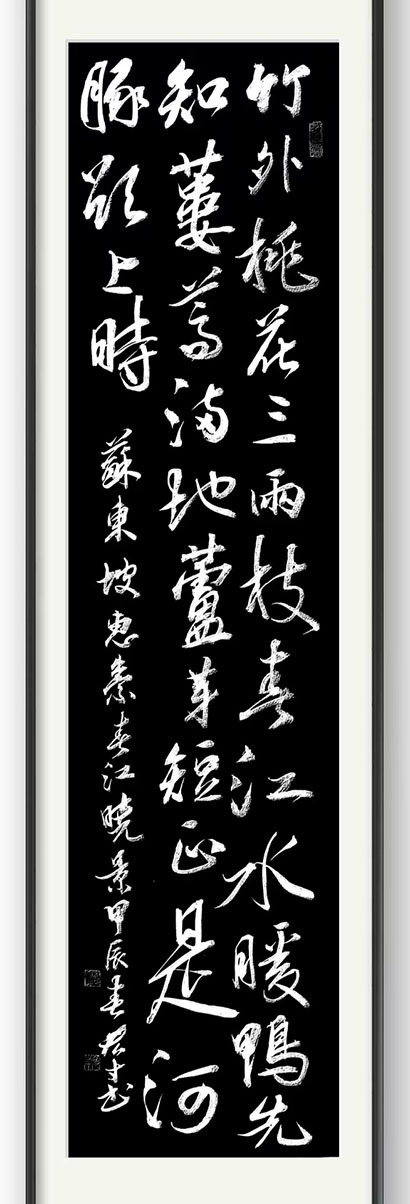 竹外桃花三兩枝春江水暖鴨先
知蔞蒿滿地蘆芽短正是河
豚欲上時
蘇東坡惠崇春江曉景甲辰春